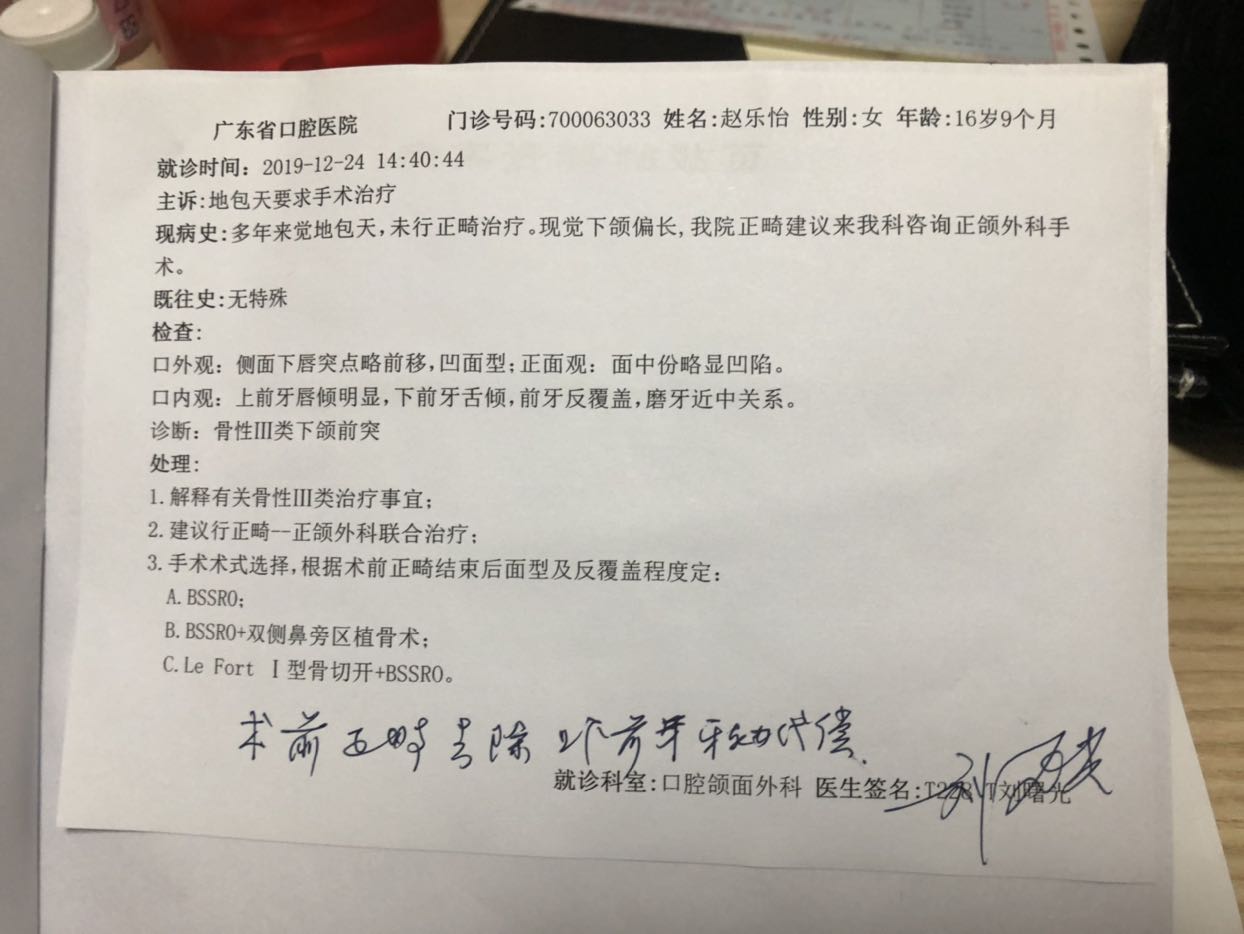 广东省口腔医院 门诊号码:700063033 姓名:赵乐怡 性别:女 年龄:16岁9个月
就诊时间: 2019-12-24 14:40:44
主诉:地包天要求手术治疗
现病史:多年来觉地包天,未行正畸治疗。现觉下颌偏长,我院正畸建议来我科咨询正颌外科手
术。
既往史:无特殊
检查:
口外观: 侧面下唇突点略前移,凹面型;正面观: 面中份略显凹陷。
口内观: 上前牙唇倾明显,下前牙舌倾,前牙反覆盖,磨牙近中关系。
诊断: 骨性III类下颌前突
处理:
1.解释有关骨性III类治疗事宜;
2.建议行正畸--正颌外科联合治疗;
3.手术术式选择,根据术前正畸结束后面型及反覆盖程度定:
A.BSSRO;
B.BSSRO+双侧鼻旁区植骨术;
C.Le Fort I型骨切开+BSSRO。
术前正畸去除上下前牙牙代偿.
就诊科室:口腔颌面外科 医生签名:T228 T刘曙光